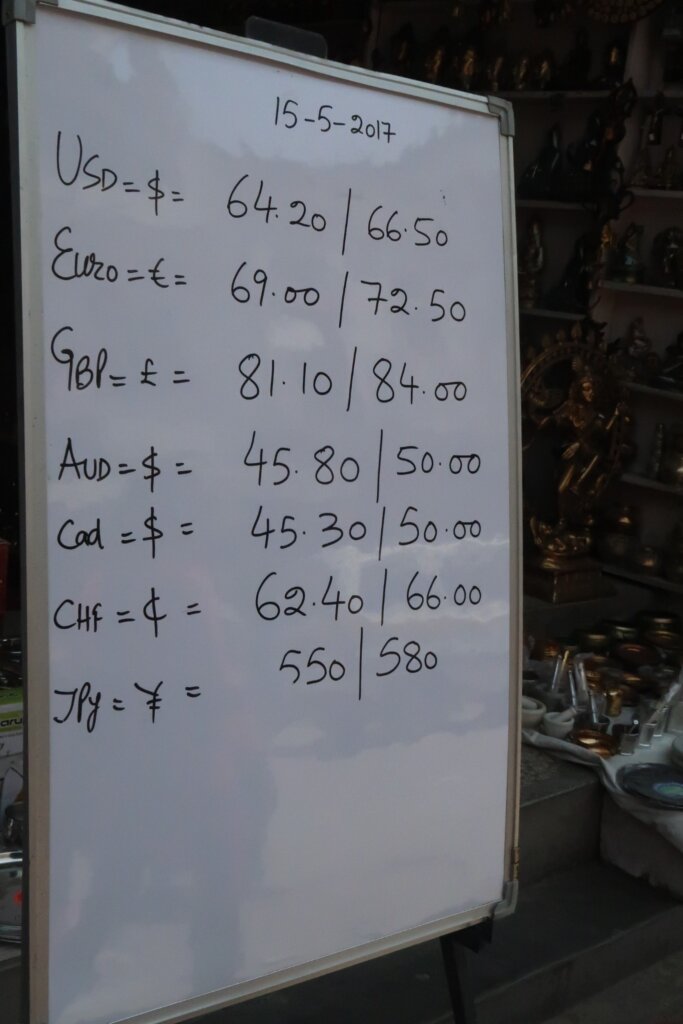 15-5-2017
USD = $ = 64.20 | 66.50
Euro = € = 69.00 | 72.50
GBP = £ = 81.10 | 84.00
AUD = $ = 45.80 | 50.00
Cad = $ = 45.30 | 50.00
CHf = ₵ = 62.40 | 66.00
JPy = ¥ = 550 | 580